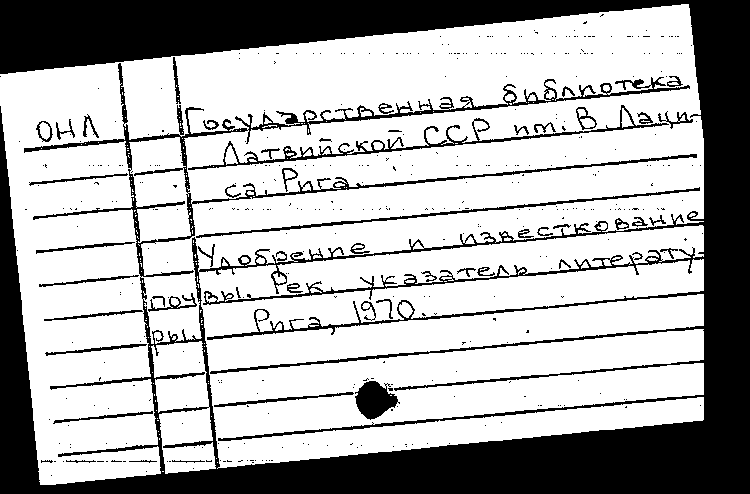 ОНЛ Государственная библиотека
Латвийской ССР им. В Лаци-
са. Рига.
Удобрение и известкование
почвы. Рек. указатель литерату-
ры. Рига, 1970.